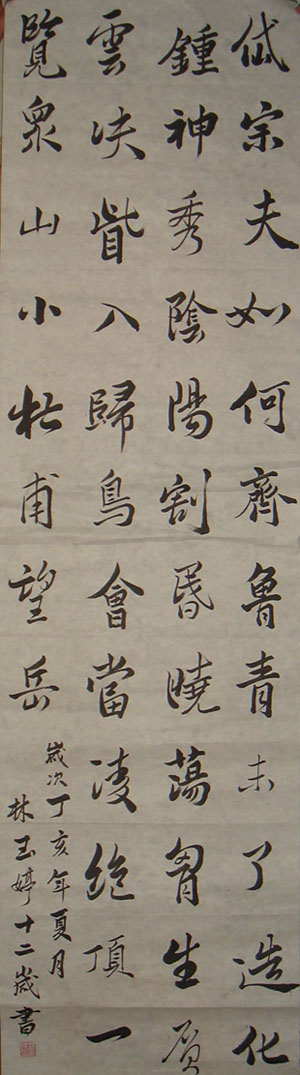 岱宗夫如何齊魯青未了造化
鍾神秀陰陽割昬曉蕩胷生層
雲决眥入歸鳥會當凌絕頂一
覽衆山小杜甫望岳
歲次丁亥年夏月
林玉婷十二歲書